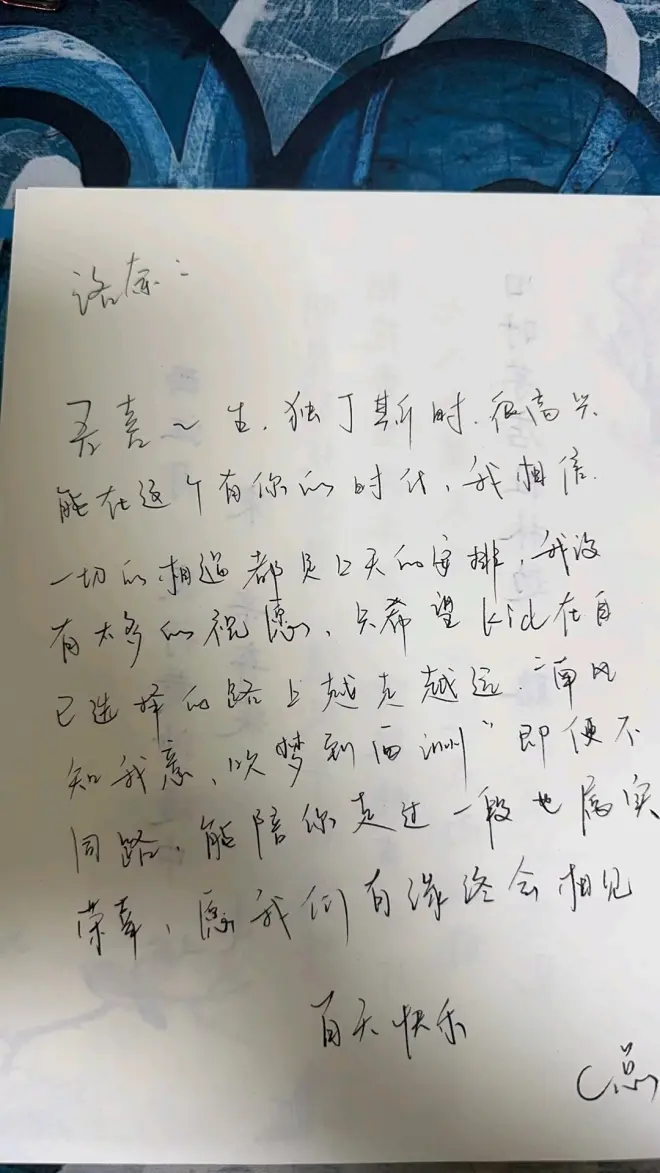 洛奈：
吾喜一生，独丁斯时，很高兴
能在这个有你的时代，我相信
一切的相遇都是上天的安排，我没
有太多的祝愿，只希望kid在自
己选择的路上越走越远，“南风
知我意，吹梦到西洲”即便不
同路，能陪你走过一段也属实
荣幸，愿我们有缘终会相见
百天快乐
C总